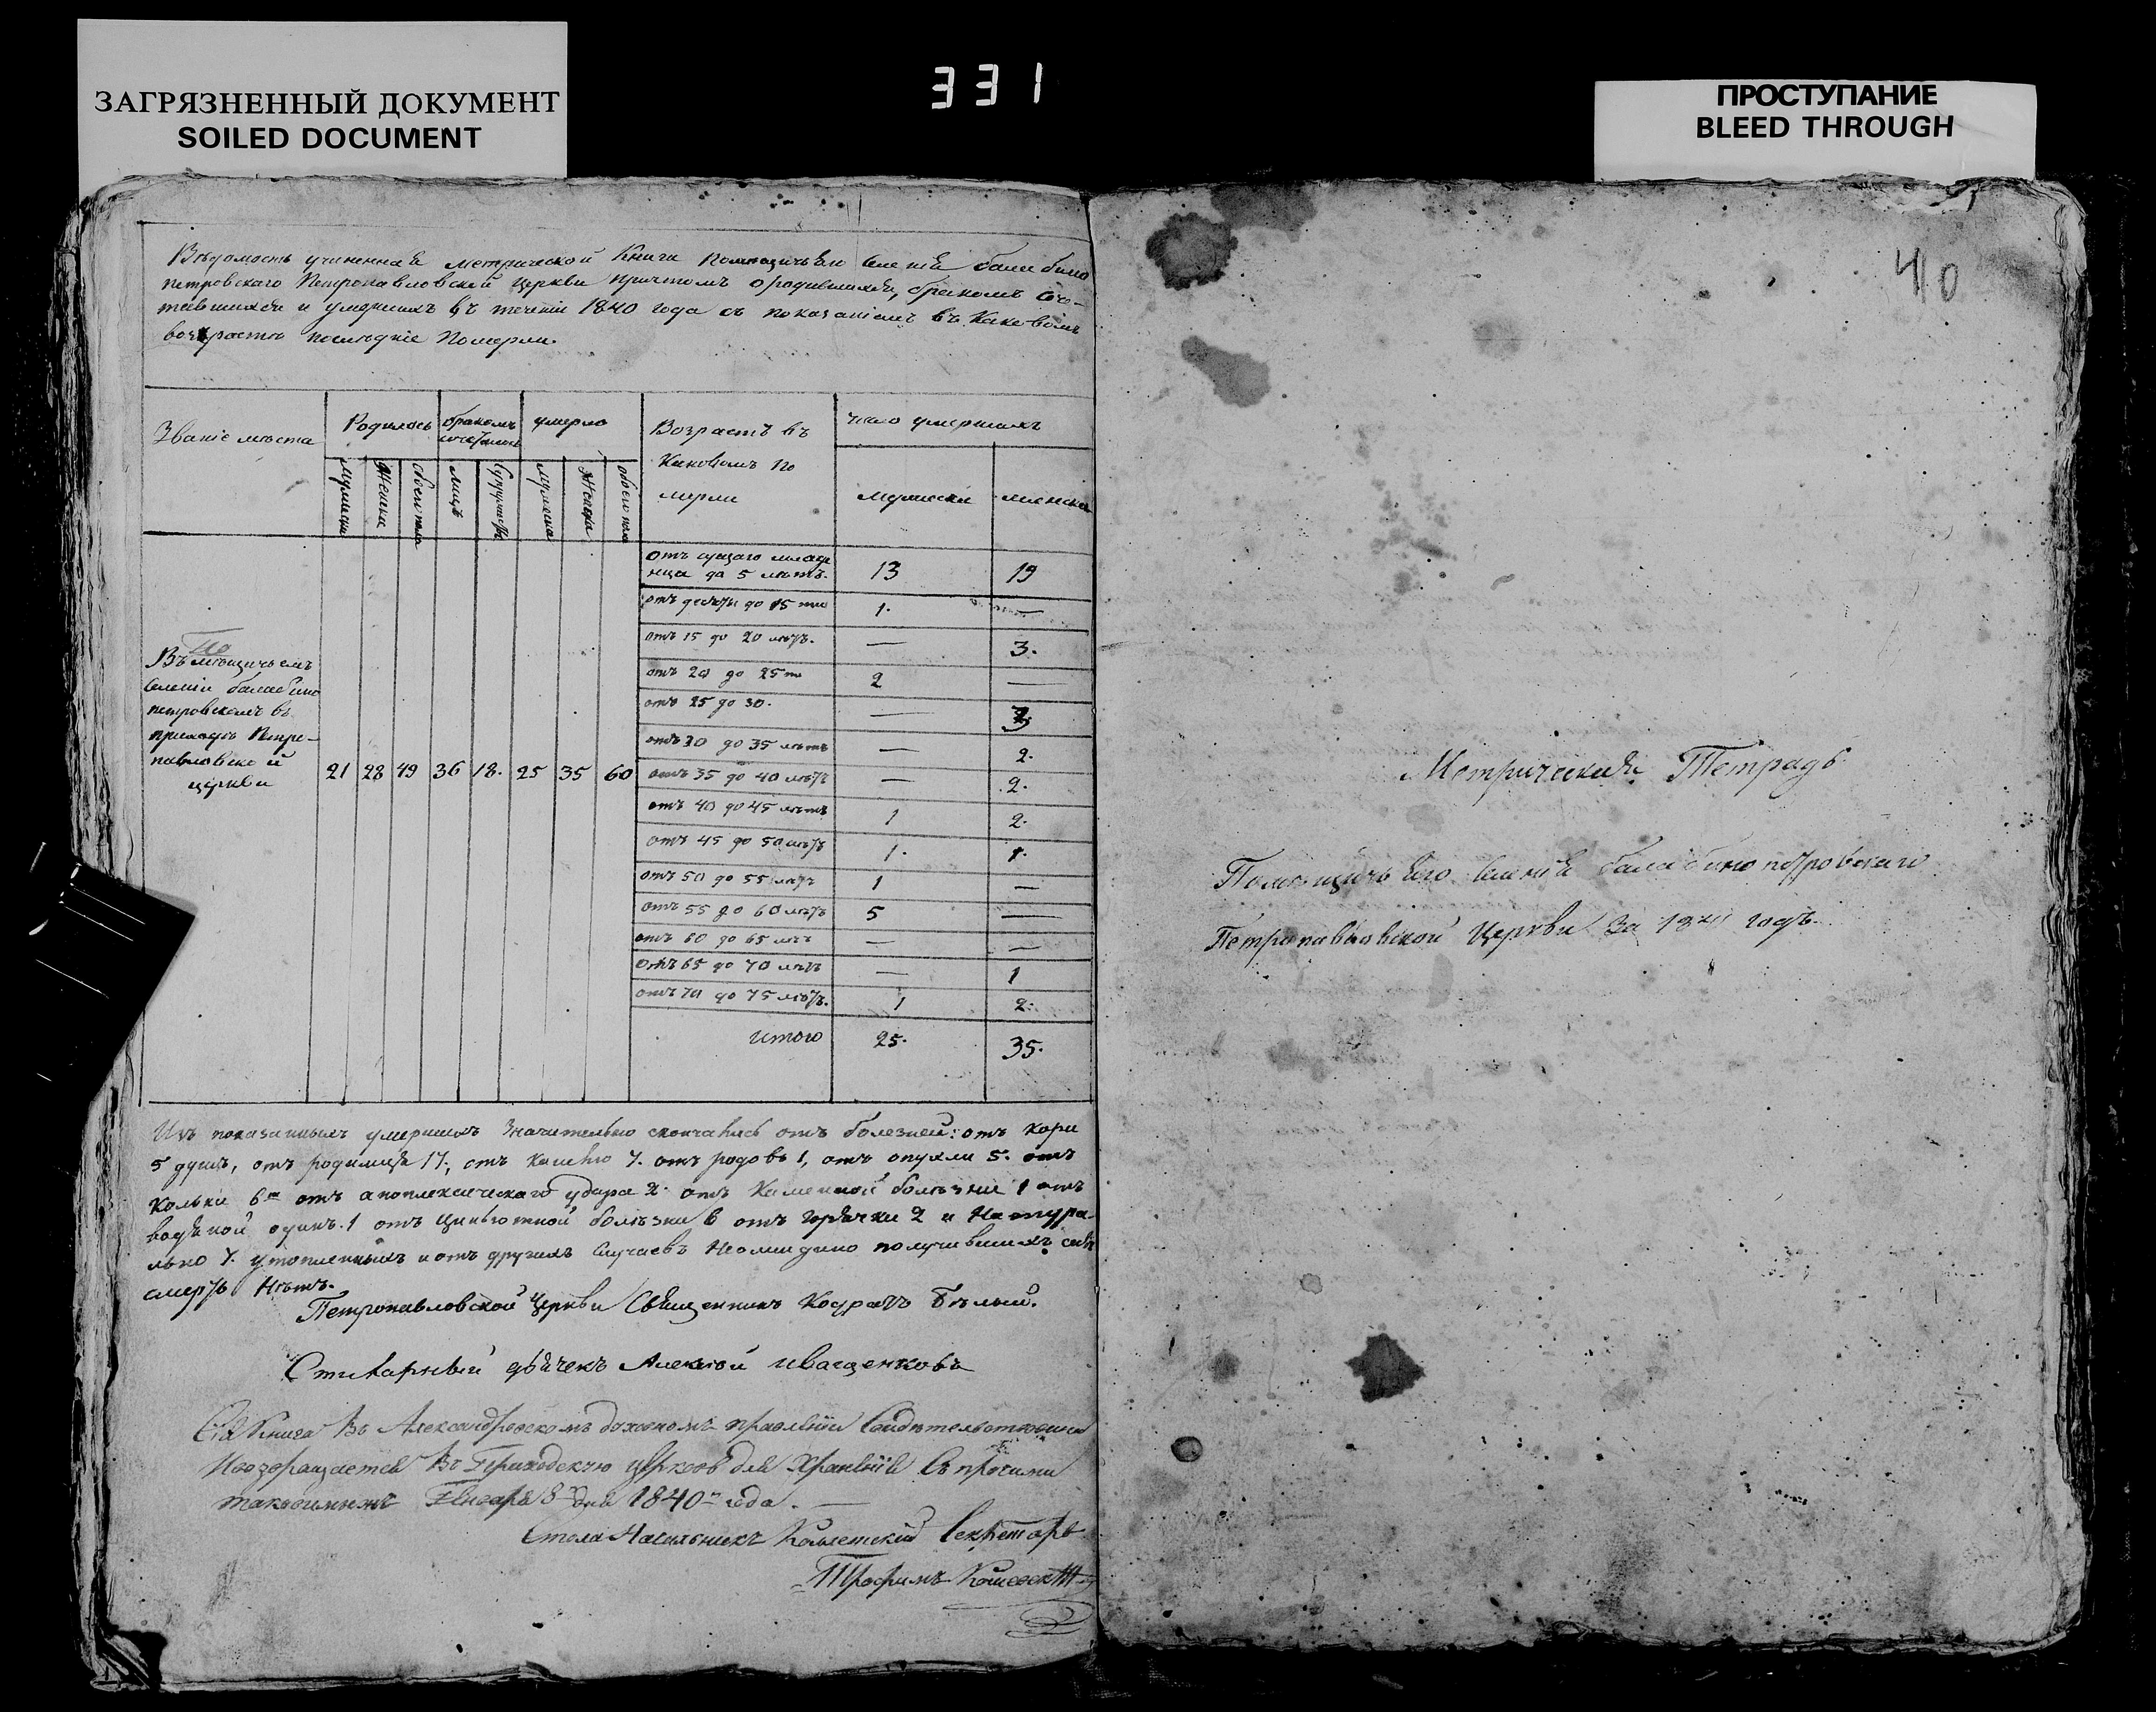 ЗАГРЯЗНЕННЫЙ ДОКУМЕНТ
SOILED DOCUMENT
331
ПРОСТУПАНИЕ
BLEED THROUGH
Вѣдомость учиненная метрической Книги Помѣщичьяго селенія балабино
петровскаго Петропавловской церкви причтомъ о родившихся, бракомъ соче-
тавшихся и умершихъ въ теченіи 1840 года съ показаніемъ въ каковомъ
возрастѣ послѣдніе померли.
Званіе мѣста
Родилось
бракомъ сочеталось
умерло
Возрастъ въ
Каковомъ по
мерли
число умершихъ
мужеска
женска
обоего пола
лицъ
супружствъ
мужеска
женска
обоего пола
мужеска
женска
Въ помѣщичьемъ
селеніи балабино
петровскомъ въ
приходѣ Петро-
павловской
церкви
21 28 49 36 18. 25 35 60
отъ сущаго младе
нца до 5 лѣтъ. 13 19
отъ до 15 1. —
отъ 15 до 20 лѣтъ. — 3.
отъ 20 до 25 2 —
отъ 25 до 30. —
отъ 30 до 35 лѣтъ — 2.
отъ 35 до 40 лѣтъ — 2.
отъ 40 до 45 лѣтъ 1 2.
отъ 45 до 50 лѣтъ 1. 1.
отъ 50 до 55 лѣтъ 1 —
отъ 55 до 60 лѣтъ 5 —
отъ 60 до 65 лѣтъ — —
отъ 65 до 70 лѣтъ — 1
отъ 70 до 75 лѣтъ. 1 2.
итого 25. 35.
Изъ показанныхъ умершихъ значительно скончались отъ болезней: отъ кори
5 душъ, отъ родимца 17, отъ кашлю 7. отъ родовъ 1, отъ опухли 5. отъ
кольки 6 отъ апоплексическаго удара 2. отъ Каменной болѣзни 1 отъ
водяной одинъ. 1 отъ цынготной болѣзни 6 отъ горячки 2 и Натура-
льно 7. утопленныхъ и отъ другихъ случаевъ Неожидано получившихъ себѣ
смерть Нѣтъ.
Петропавловской Церкви Священникъ Кодратъ Бѣлый.
Стихарный дьячекъ Алексѣй Иващенковъ
Сія Книга Въ Александровскомъ духовномъ правленіи
И возвращается Въ Приходскую церковь для Храненія Съ прочими
таковыми Января 8 дня 1840 года.
Стола Начальникъ Колежскій Секретарь
Трофимъ
40
Метрическая Тетрадь
Помѣщичьяго Селенія балабинопетровскаго
Петропавловской Церкви За годъ.